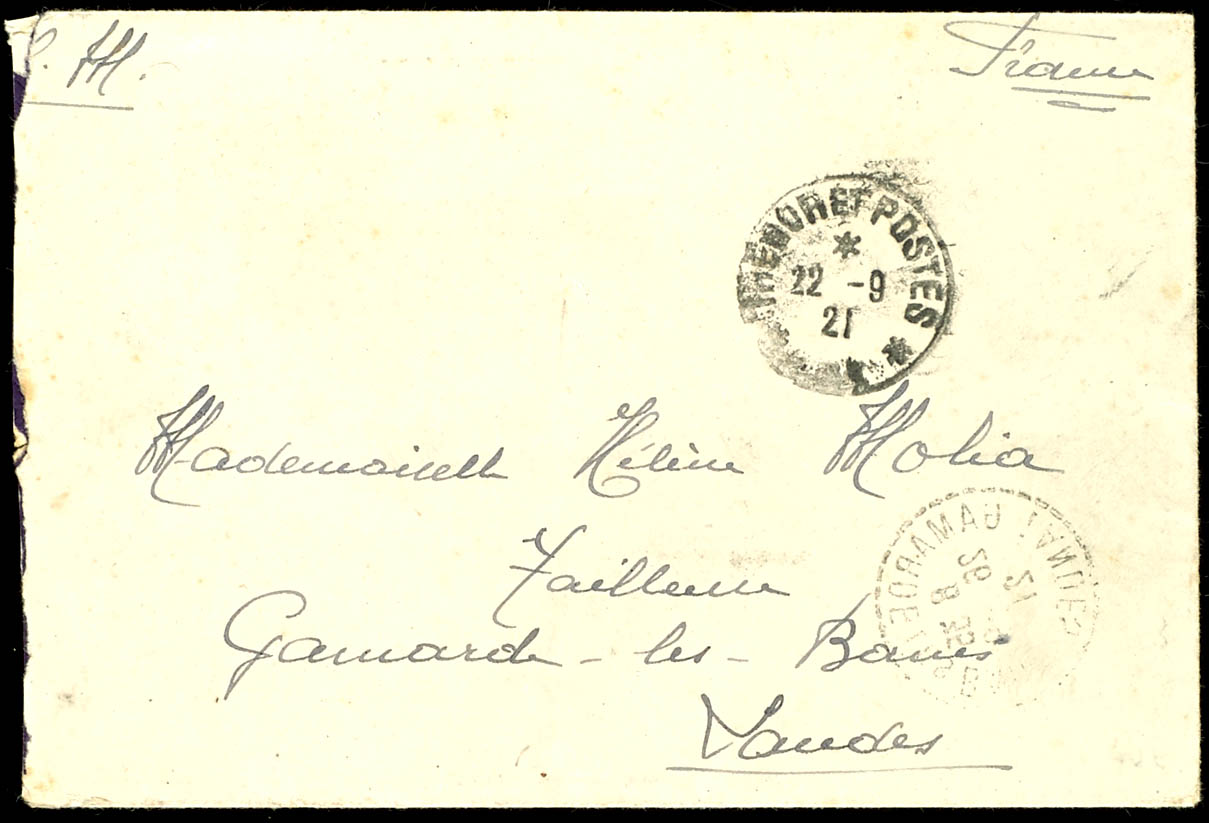 . M.
France
TRÉSOR ET POSTES
22 -9
21
Mademoiselle Hélène Molia
Tailleuse
Gamarde - les - Bains
Landes
GAMARDE LANDES